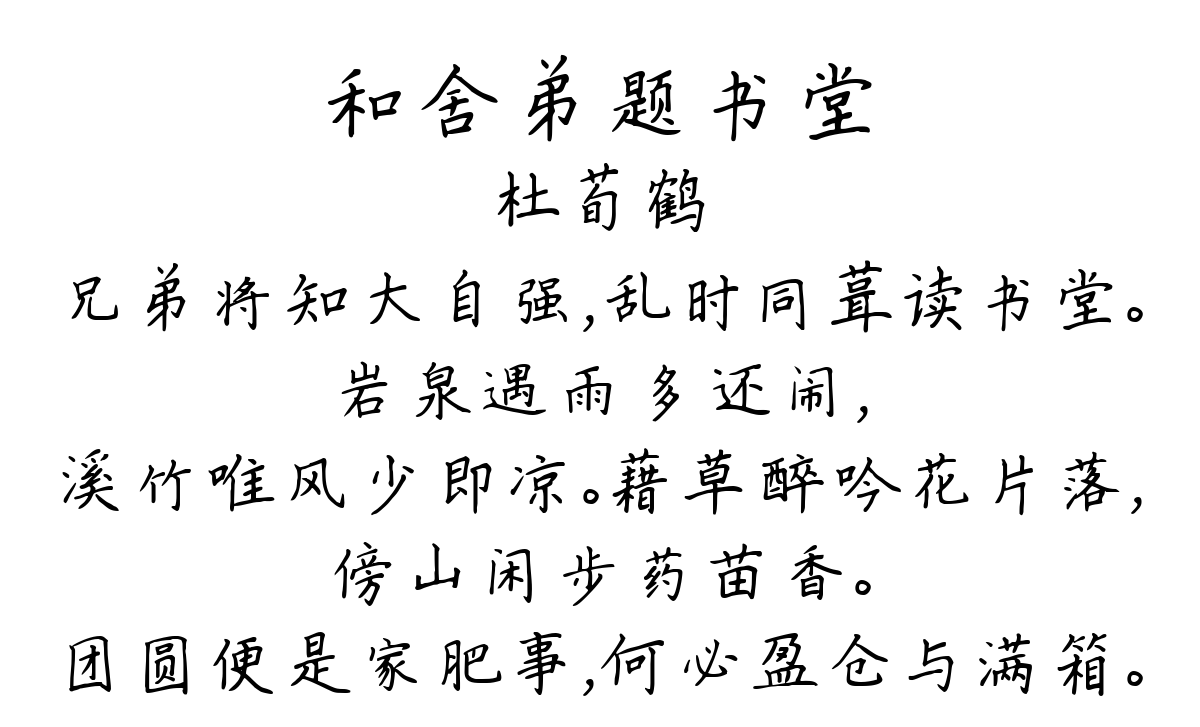 和舍弟题书堂
杜荀鹤
兄弟将知大自强,乱时同葺读书堂。
岩泉遇雨多还闹,
溪竹唯风少即凉。藉草醉吟花片落,
傍山闲步药苗香。
团圆便是家肥事,何必盈仓与满箱。